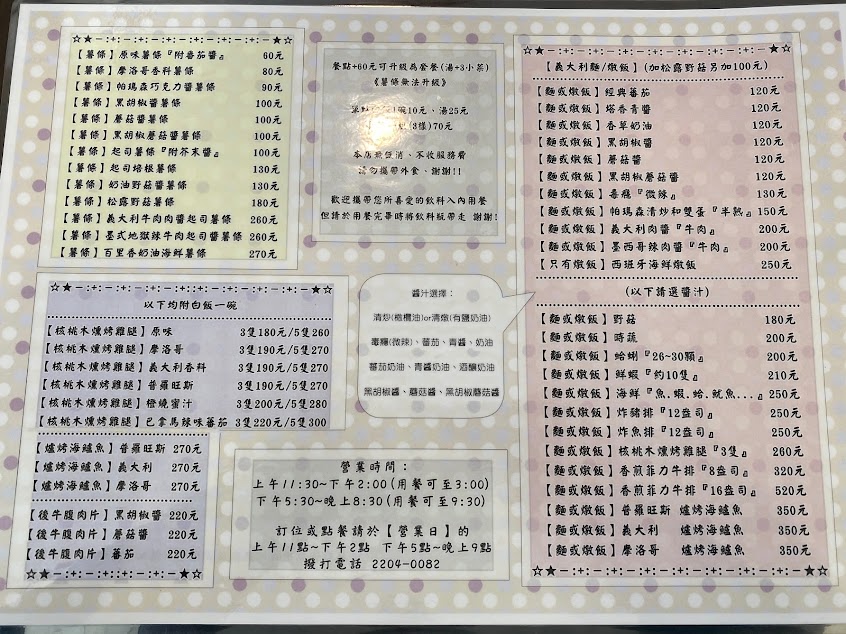 【薯條】原味薯條『附番茄醬』 60元
【薯條】摩洛哥香料薯條 80元
【薯條】帕瑪森巧克力醬薯條 90元
【薯條】黑胡椒醬薯條 100元
【薯條】蘑菇醬薯條 100元
【薯條】黑胡椒蘑菇醬薯條 100元
【薯條】起司薯條『附芥末醬』 100元
【薯條】起司培根薯條 130元
【薯條】奶油野菇醬薯條 130元
【薯條】松露野菇薯條 180元
【薯條】義大利牛肉肉醬起司薯條 260元
【薯條】墨式地獄辣牛肉起司醬薯條 260元
【薯條】百里香奶油海鮮薯條 270元
以下均附白飯一碗
【核桃木燻烤雞腿】原味 3隻180元/5隻260
【核桃木燻烤雞腿】摩洛哥 3隻190元/5隻270
【核桃木燻烤雞腿】義大利香料 3隻190元/5隻270
【核桃木燻烤雞腿】普羅旺斯 3隻190元/5隻270
【核桃木燻烤雞腿】橙燒蜜汁 3隻200元/5隻280
【核桃木燻烤雞腿】巴拿馬辣味蕃茄 3隻220元/5隻300
【爐烤海鱸魚】普羅旺斯 270元
【爐烤海鱸魚】義大利 270元
【爐烤海鱸魚】摩洛哥 270元
【後牛腹肉片】黑胡椒醬 220元
【後牛腹肉片】蘑菇醬 220元
【後牛腹肉片】蕃茄 220元
餐點+60元可升級為套餐(湯+3小菜)
《薯條無法升級》
10元、湯25元
(3樣)70元
本店無營消、不收服務費
請勿攜帶外食、謝謝!!
歡迎攜帶您所喜愛的飲料入內用餐
但請於用餐完畢時將飲料瓶帶走 謝謝!
醬汁選擇:
清炒(橄欖油)or清燉(有鹽奶油)
毒癮(微辣)、蕃茄、青醬、奶油
蕃茄奶油、青醬奶油、酒釀奶油
黑胡椒醬、蘑菇醬、黑胡椒蘑菇醬
營業時間:
上午11:30~下午2:00(用餐可至3:00)
下午5:30~晚上8:30(用餐可至9:30)
訂位或點餐請於【營業日】的
上午11點~下午2點 下午5點~晚上9點
撥打電話 2204-0082
【義大利麵/燉飯】(加松露野菇另加100元)
【麵或燉飯】經典蕃茄 120元
【麵或燉飯】塔香青醬 120元
【麵或燉飯】香草奶油 120元
【麵或燉飯】黑胡椒醬 120元
【麵或燉飯】蘑菇醬 120元
【麵或燉飯】黑胡椒蘑菇醬 120元
【麵或燉飯】毒癮『微辣』 130元
【麵或燉飯】帕瑪森清炒和雙蛋『半熟』150元
【麵或燉飯】義大利肉醬『牛肉』 200元
【麵或燉飯】墨西哥辣肉醬『牛肉』 200元
【只有燉飯】西班牙海鮮燉飯 250元
(以下請選醬汁)
【麵或燉飯】野菇 180元
【麵或燉飯】時蔬 200元
【麵或燉飯】蛤蜊『26~30顆』 200元
【麵或燉飯】鮮蝦『約10隻』 210元
【麵或燉飯】海鮮『魚.蝦.蛤.魷魚...』250元
【麵或燉飯】炸豬排『12盎司』 250元
【麵或燉飯】炸魚排『12盎司』 250元
【麵或燉飯】核桃木燻烤雞腿『3隻』 260元
【麵或燉飯】香煎菲力牛排『8盎司』 320元
【麵或燉飯】香煎菲力牛排『16盎司』 520元
【麵或燉飯】普羅旺斯 爐烤海鱸魚 350元
【麵或燉飯】義大利 爐烤海鱸魚 350元
【麵或燉飯】摩洛哥 爐烤海鱸魚 350元